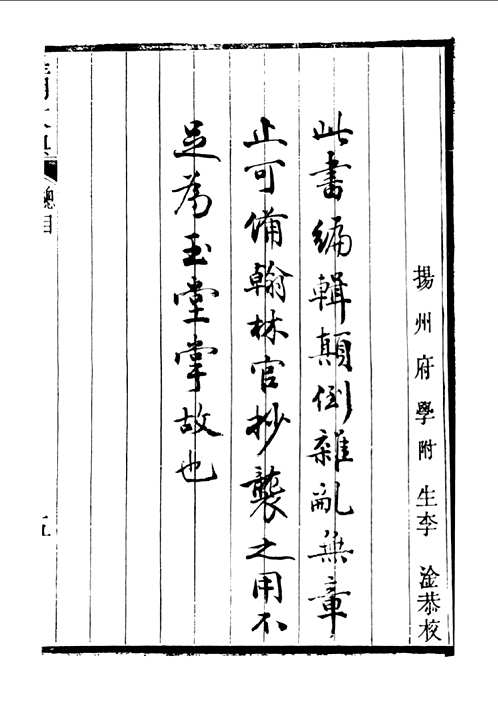 揚州府學附生李淦恭校
此書編輯顛倒雜亂無章
止可備翰林官抄襲之用不
足為玉堂掌故也
總目
五